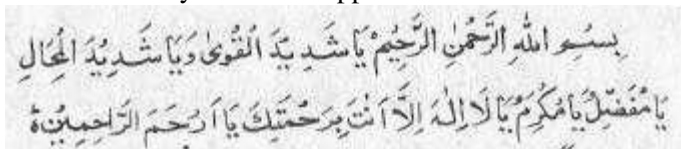 بِسْمِ اللهِ الرَّحْمٰنِ الرَّحِيْمِ يَا شَدِيْدَ الْقُوٰى وَيَا شَدِيْدَ الْمِحَالِ
يَا مُفَضِّلُ يَا مُكْرِمُ يَا لَا اِلٰهَ اِلَّا اَنْتَ بِرَحْمَتِكَ يَا اَرْحَمَ الرَّاحِمِيْنَ ۃ